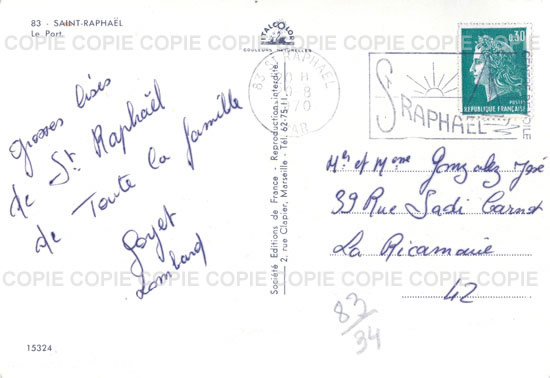 83 - SAINT-RAPHAËL
Le Port.
COPIE COPIE COPIE COPIE COPIE COPIE COPIE
ITALCOLOR
COULEURS NATURELLES
83 ST RAPHAEL
ST RAPHAËL
0,30
POSTES
REPUBLIQUE FRANÇAISE
Grosses bises
de St Raphaël
de Toute la famille
Goyet
Lombard
Société Editions de France - Reproduction interdite.
2, rue Clapier, Marseille - Tél. 62-75-11.
Mr et Mme Gonzalez José
39 Rue Sadi Carnot
La Ricamarie
42
COPIE COPIE COPIE COPIE COPIE COPIE COPIE
83/34
15324